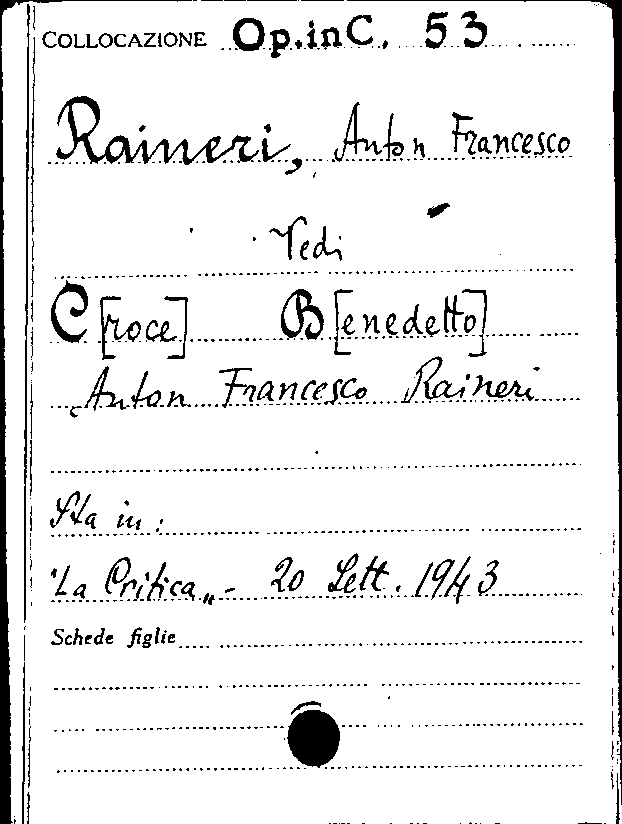 COLLOCAZIONE Op.inC. 53
Raineri, Anton Francesco
Vedi
C[roce] B[enedetto]
Anton Francesco Raineri
Sta in:
"La Critica„ - 20 Sett. 1943
Schede figlie